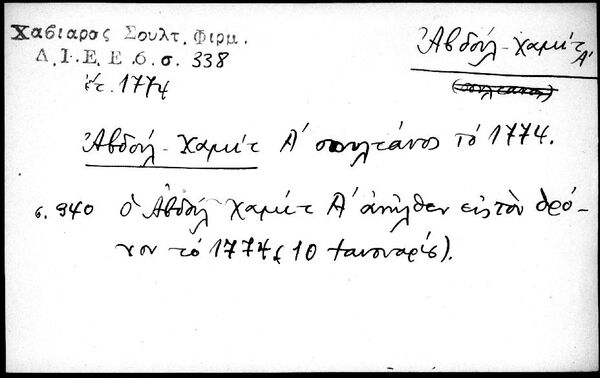 Χαβιαρας Σουλτ. Φιρμ.
Δ.Ι.Ε.Ε 6. σ. 338
ἔτ. 1774
Ἀβδούλ-Χαμίτ Α'
(σουλτανος)
Ἀβδούλ-Χαμίτ Α' σουλτάνος τό 1774.
σ. 340 ὁ Ἀβδούλ Χαμίτ Α' ἀνῆλθεν εἰς τὸν θρό-
νον τό 1774 (10 Ιανουαρίου).